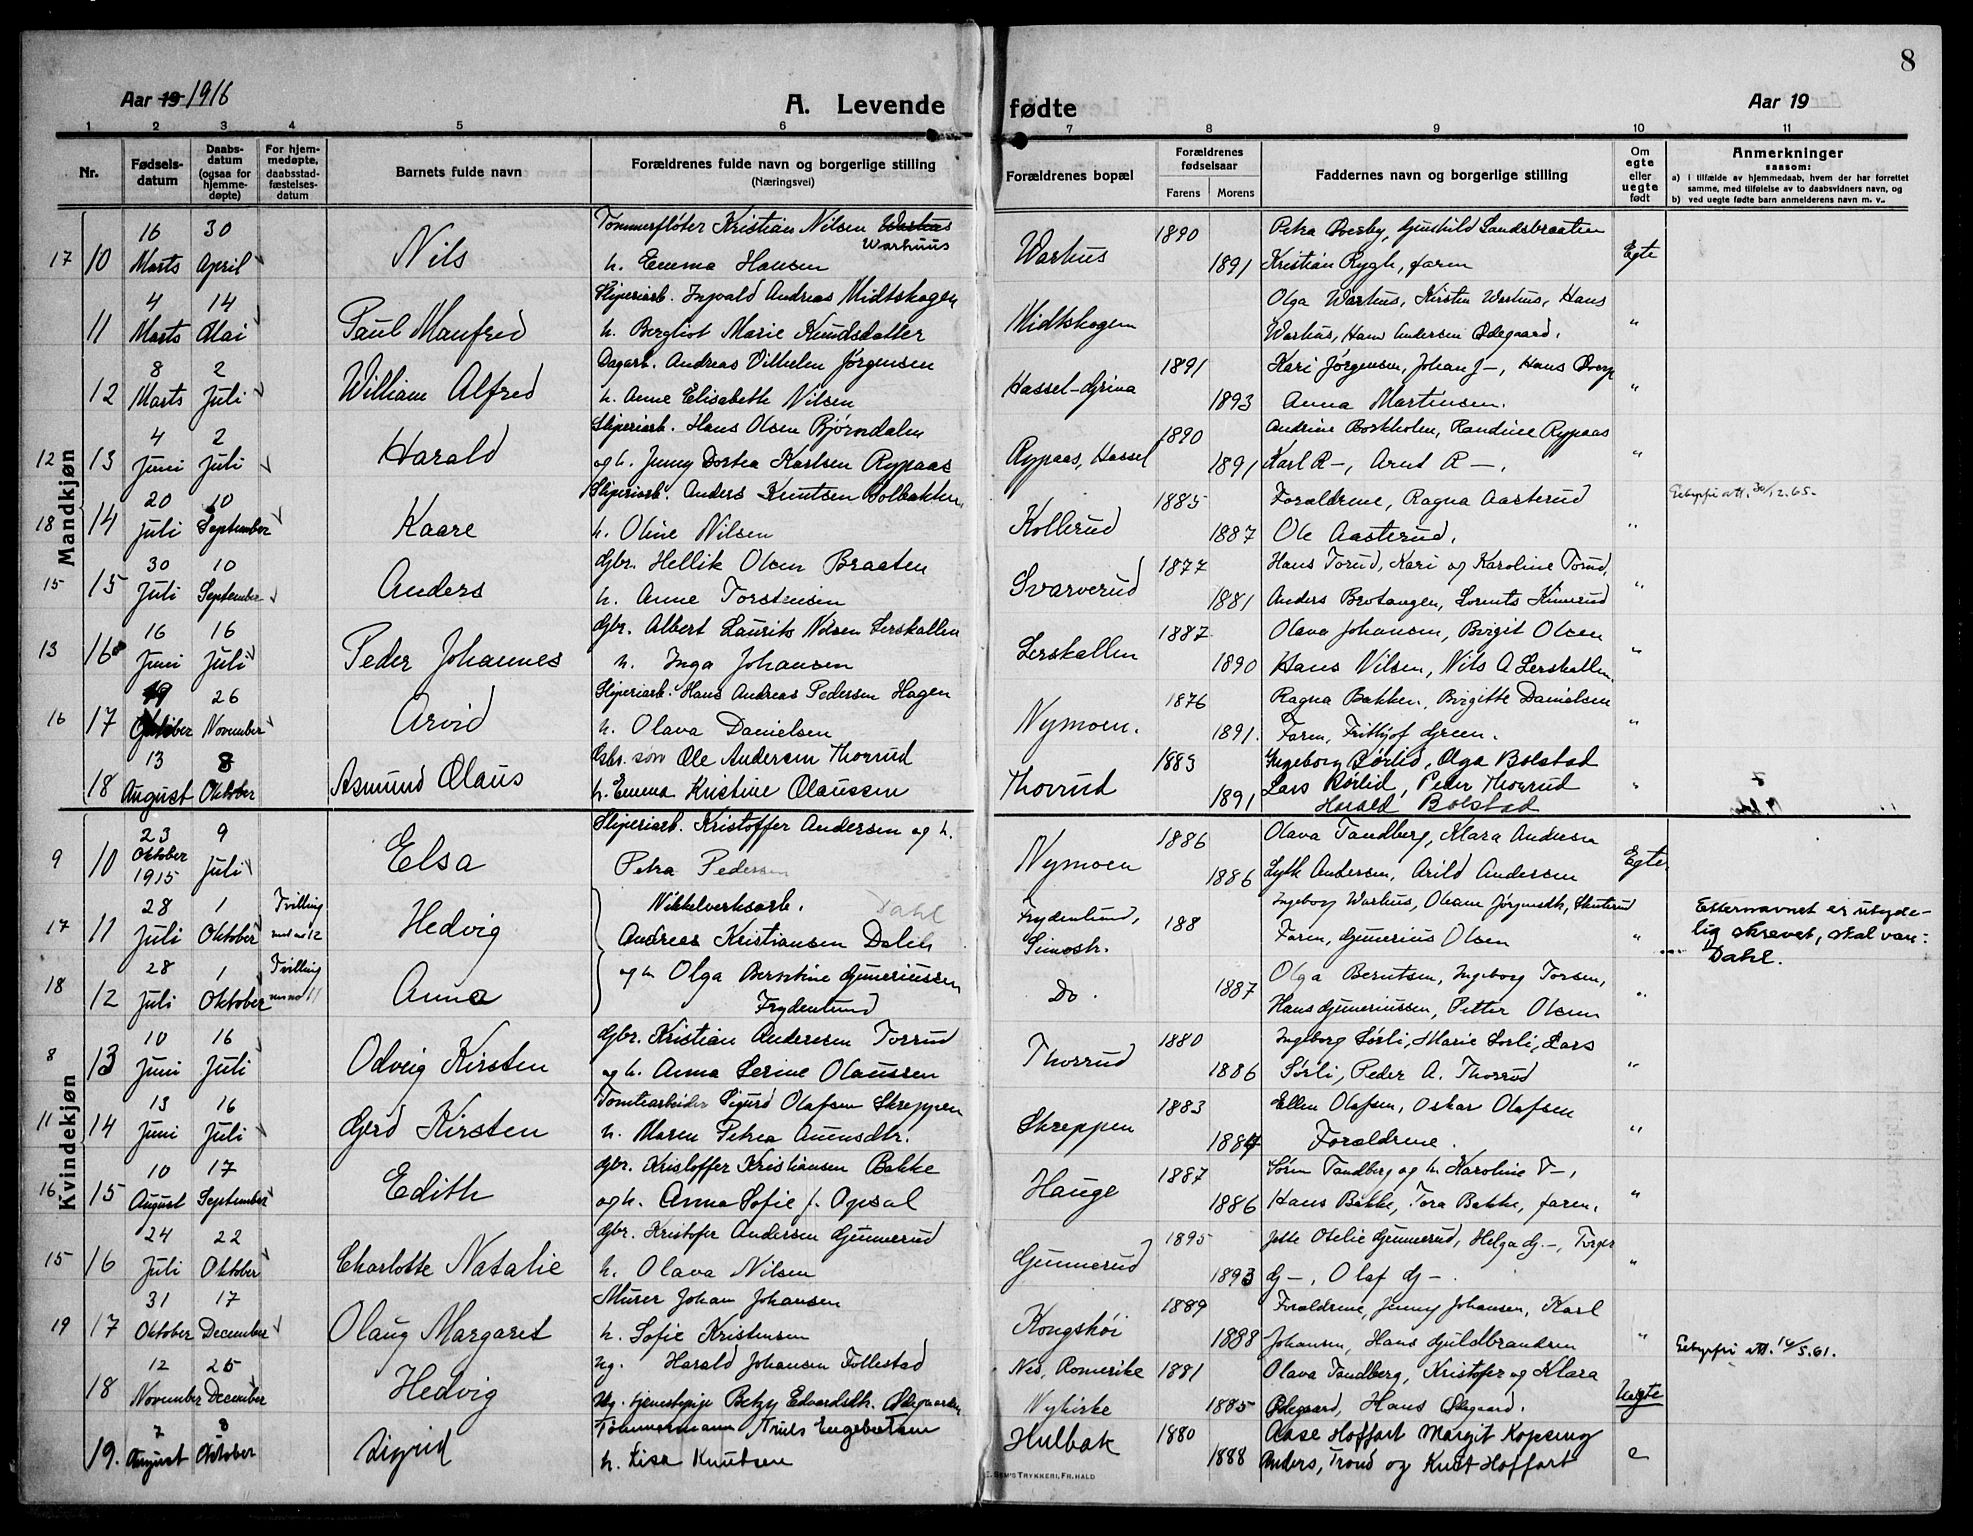 8
Aar 19 1916
A. Levende fødte
Aar 19
1 2 3 4 5 6 7 8 9 10 11
Nr.
Fødsels-datum
Daabs-datum (ogsaa for hjemme-døpte)
For hjem-medøpte, daabsstad-fæstelses-datum
Barnets fulde navn
Forældrenes fulde navn og borgerlige stilling (Næringsvei)
Forældrenes bopæl
Forældrenes fødselsaar
Farens Morens
Faddernes navn og borgerlige stilling
Om egte eller uegte født
Anmerkninger
saasom:
a) i tilfælde av hjemmedaab, hvem der har forrettet samme, med tilføielse av to daabsvidners navn, og
b) ved uegte fødte barn anmelderens navn m. v..
Mandkjøn
16 30 Tømmerfløter Kristian Nilsen Warhus 1890 Petra Oversby, Gunhild Sandsbraaten
Warhuus
17 10 Marts April Nils h. Emma Hansen Warhus 1891 Kristian Rygh, faren Egte
4 14 Sliperiarb. Ingvald Andreas Midtskogen Olga Warhus, Kirsten Warhus, Hans
11 Marts Mai Paul Manfred h. Bergliot Marie Knudsdatter Midtskogen Warhus, Hans Andersen Ødegaard. "
8 2 Dagarb. Andreas Vilhelm Jørgensen 1891 Kari Jørgensen, Johan J–, Hans Overp
12 Marts Juli William Alfred h. Anne Elisabeth Nilsen Hassel-Grina 1893 Anna Martinsen. "
4 2 Sliperiarb. Hans Olsen Bjørndalen 1890 Andrine Borkholen, Randine Rypaas
12 13 Juni Juli Harald og h. Jenny Dortea Karlsen Rypaas Rypaas, Hassel 1891 Karl R–, Arnt R–. "
20 10 Sliperiarb. Anders Knutsen Solbakken 1885 Forældrene, Ragna Aasterud Gebyrfri att. 30/12.65.
18 14 Juli September Kaare h. Oline Nilsen Kollerud 1887 Ole Aasterud. "
30 10 Gbr. Hellik Olsen Braaten 1877 Hans Torud, Kari og Karoline Torud,
15 15 Juli September Anders h. Anne Torstensen Svarverud 1881 Anders Brotangen, Lorents Kinnerud "
16 16 Gbr. Albert Laurits Nilsen Lerskallen 1887 Olava Johansen, Birgit Olsen
13 16 Juni Juli Peder Johannes h. Inga Johansen Lerskallen 1890 Hans Nilsen, Nils A Lerskallen "
19 26 Sliperiarb. Hans Andreas Pedersen Hagen 1876 Ragna Bakken, Birgitte Danielsen
16 17 Oktober November Arvid h. Olava Danielsen Nymoen. 1891. Faren, Fritjof Green. "
13 8 Gbr. søn Ole Andersen Thorrud 1883 Ingeborg Sørlid, Olga Bolstad
18 August Oktober Asmund Olaus h. Emma Kristine Olaussen Thorrud 1891 Lars Sørlid, Peder Thorrud "
Harald Bolstad
Kvindekjøn
23 9 Sliperiarb. Kristoffer Andersen og h. 1886 Olava Tandberg, Klara Andersen
9 10 Oktober 1915 Juli Elsa Petra Pedersen Nymoen 1886 Lyth Andersen, Arild Andersen Egte
28 1 Tvilling Nikkelverksarb. Dahl Frydenlund, Ingeborg Warhus, Oleane Jørgensdtr, Skuterud Efternavnet er utyde-
17 11 Juli Oktober med no 12 Hedvig Andreas Kristiansen Dalch Simostr. 188 Faren, Gunerius Olsen " lig skrevet, skal være:
Dahl.
28 1 Tvilling og h. Olga Bersetine Gunerinssen Olga Berntsen, Ingeborg Torsen,
18 12 Juli Oktober med no 11 Anna Frydenlund Do. 1887 Hans Gunneriussen, Petter Olsen "
10 16 Gbr. Kristian Andersen Torrud 1880 Ingeborg Sørli, Marie Sorli, Lars
8 13 Juni Juli Odveig Kirsten og h. Anna Serine Olaussen Thorrud 1886 Sørli, Peder A. Thorrud "
13 16 Tomtearbeider Sigurd Olafsen Skreppen 1883 Ellen Olafsen, Oskar Olafsen
11 14 Juni Juli Gerd Kirsten h. Maren Petrea Amunsdtr. Skreppen 1887 Forældrene. "
10 17 Gbr. Kristoffer Kristiansen Bakke 1887 Søren Tandberg og h. Karoline T–,
16 15 August September Edith og h. Anna Sofie f. Opsal Hauge 1886 Hans Bakke, Tora Bakke, faren. "
24 22 Gbr. Kristofer Andersen Gunnerud 1895 Jette Otelie Gunnerud, Helga G.–, Torger
15 16 Juli Oktober Charlotte Natalie h. Olava Nilsen Gunnerud 1893 G–, Olaf G–. "
31 17 Murer Johan Johansen 1889 Forældrene, Jenny Johansen, Karl
19 17 Oktober December Olaug Margaret h. Sofie Kristensen Kongshøi 1888 Johansen, Hans Guldbrandsen " Gebyrfri att. 14/5.61.
12 25 Ug. Harald Johansen Follestad Nes, Romerike 1881 Olava Tandberg, Kristofer og Klara
18 November December Hedvig Ug. tjenestepige Betzy Edvardsdtr. Ødegaarden Nykirke 1885 Ødegaard, Hans Ødegaard. Uegte
7 8 Tømmermann Truls Engebretsen 1880 Aase Hoffart Margit Kopseng
19. August Oktober Sigrid h. Lisa Knutsen Hulbak 1888 Anders, Trond og Knut Hoffart e
E. SEM'S TRYKKERI, FR.HALD